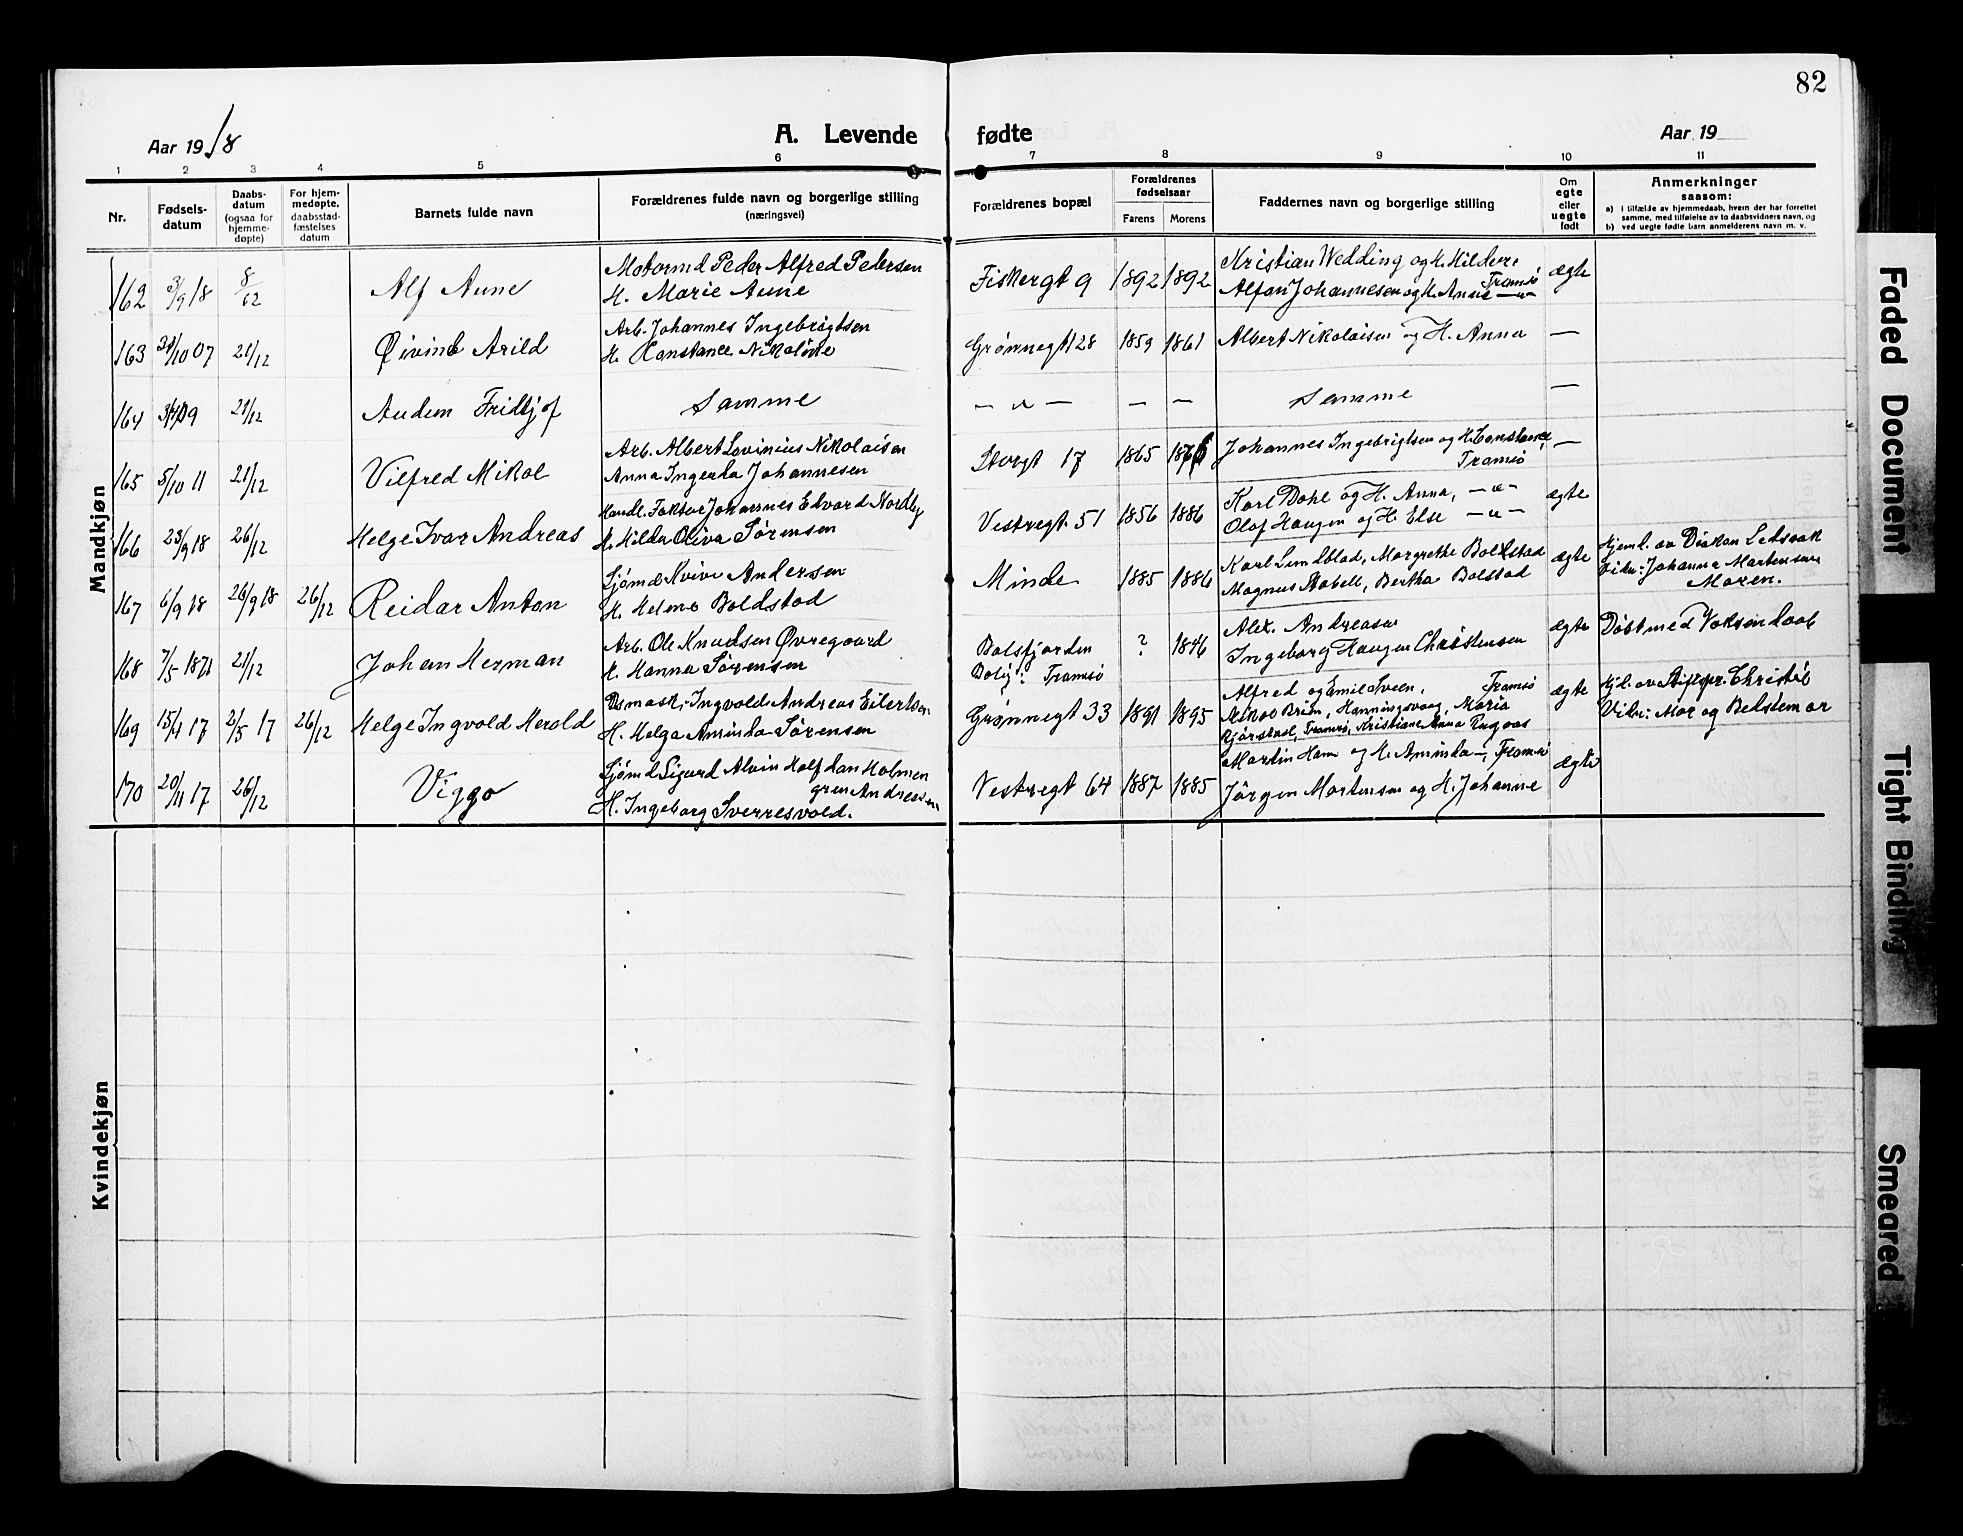 82
Aar 1918
A. Levende fødte
Aar 19
1 2 3 4 5 6 7 8 9 10 11
Nr.
Fødsels-
datum
Daabs-
datum
(ogsaa for
hjemme-
døpte)
For hjem-
medøpte,
daabsstad-
fæstelses
datum
Barnets fulde navn
Forældrenes fulde navn og borgerlige stilling
(næringsvei)
Forældrenes bopæl
Forældrenes
fødselsaar
Farens Morens
Faddernes navn og borgerlige stilling
Om
egte
eller
uegte
født
Anmerkninger
saasom:
a) i tilfælde av hjemmedaab, hvem der har forrettet
samme, med tilføielse av to daabsvidners navn, og
b) ved uegte fødte barn anmelderens navn m. v.
Mandkjøn
162 3/9 18 8/12 Alf Aune
Motormd Peder Alfred Petersen
H. Marie Aune
Fiskergt 9 1892 1892
Kristian Wedding og H. Hildur,
Tromsø
Alfon Johannesen og H. Anna —„—
ægte
163 30/10 07 21/12 Øivind Arild
Arb. Johannes Ingebrigtsen
H. Konstance Nikoline
Grønnegt 128 1859 1861
Albert Nikolaisen og H. Anna
—
164 21/12 Audun Fridtjof
Samme
— „ — — —
Samme
—
165 5/10 11 21/12 Vilfred Mikal
Arb. Albert Lovinius Nikolaisen
Anna Ingerta Johannesen
Storgt 17 1865
Johannes Ingebrigtsen og H. Constance,
Tromsø
—
166 23/9 18 26/12 Helge Ivar Andreas
Handl. Faktor Johannes Edvard Nordby
H. Hilda Oliva Sørensen
Vestregt. 51 1856 1886
Karl Dahl og H. Anna, —„—
Olaf Haugen og H. Else —„—
ægte
167 6/9 18 26/9 18 26/12 Reidar Anton
Sjømd Kvive Andersen
H. Helene Boldstad
Minde 1885 1886
Karl Lindblad, Margrethe Boldstad
Magnus Stabell, Bertha Bolstad
ægte
Hjemd. av Diakon
Vidn: Johanna Martensen
Moren.
168 7/5 1871 21/12 Johan Herman
Arb. Ole Knudsen Øvregaard
H. Hanna Sørensen
Balsfjorden
Bolig: Tromsø
? 1846
Alex. Andreasen
Ingeborg Haugen Christensen
ægte
Døbt med Voksendaab
169 15/1 17 2/5 17 26/12 Helge Ingvold Herold
Dsmask. Ingvold Andreas Eilertsen
H. Helga Aminda Sørensen
Grønnegt 33 1891 1895
Alfred og Emilie Sveen, Tromsø
Mikal Brun, Honningsvaag, Maria
Tromsø, Kristiane Anna
ægte
Hjd. av
Vidn: Mor og Bestemor
170 20/11 17 26/12 Viggo
Sjømd Sigurd Alvin Halfdan Holmen
gren Andresen
H. Ingeborg Sverresvold.
Vestregt 64 1887 1885
Martin Ham og H. Aminda —, Tromsø
Jørgen Mortensen og H. Johanne
ægte
Kvindekjøn
Faded Document
Tight Binding
Smeared